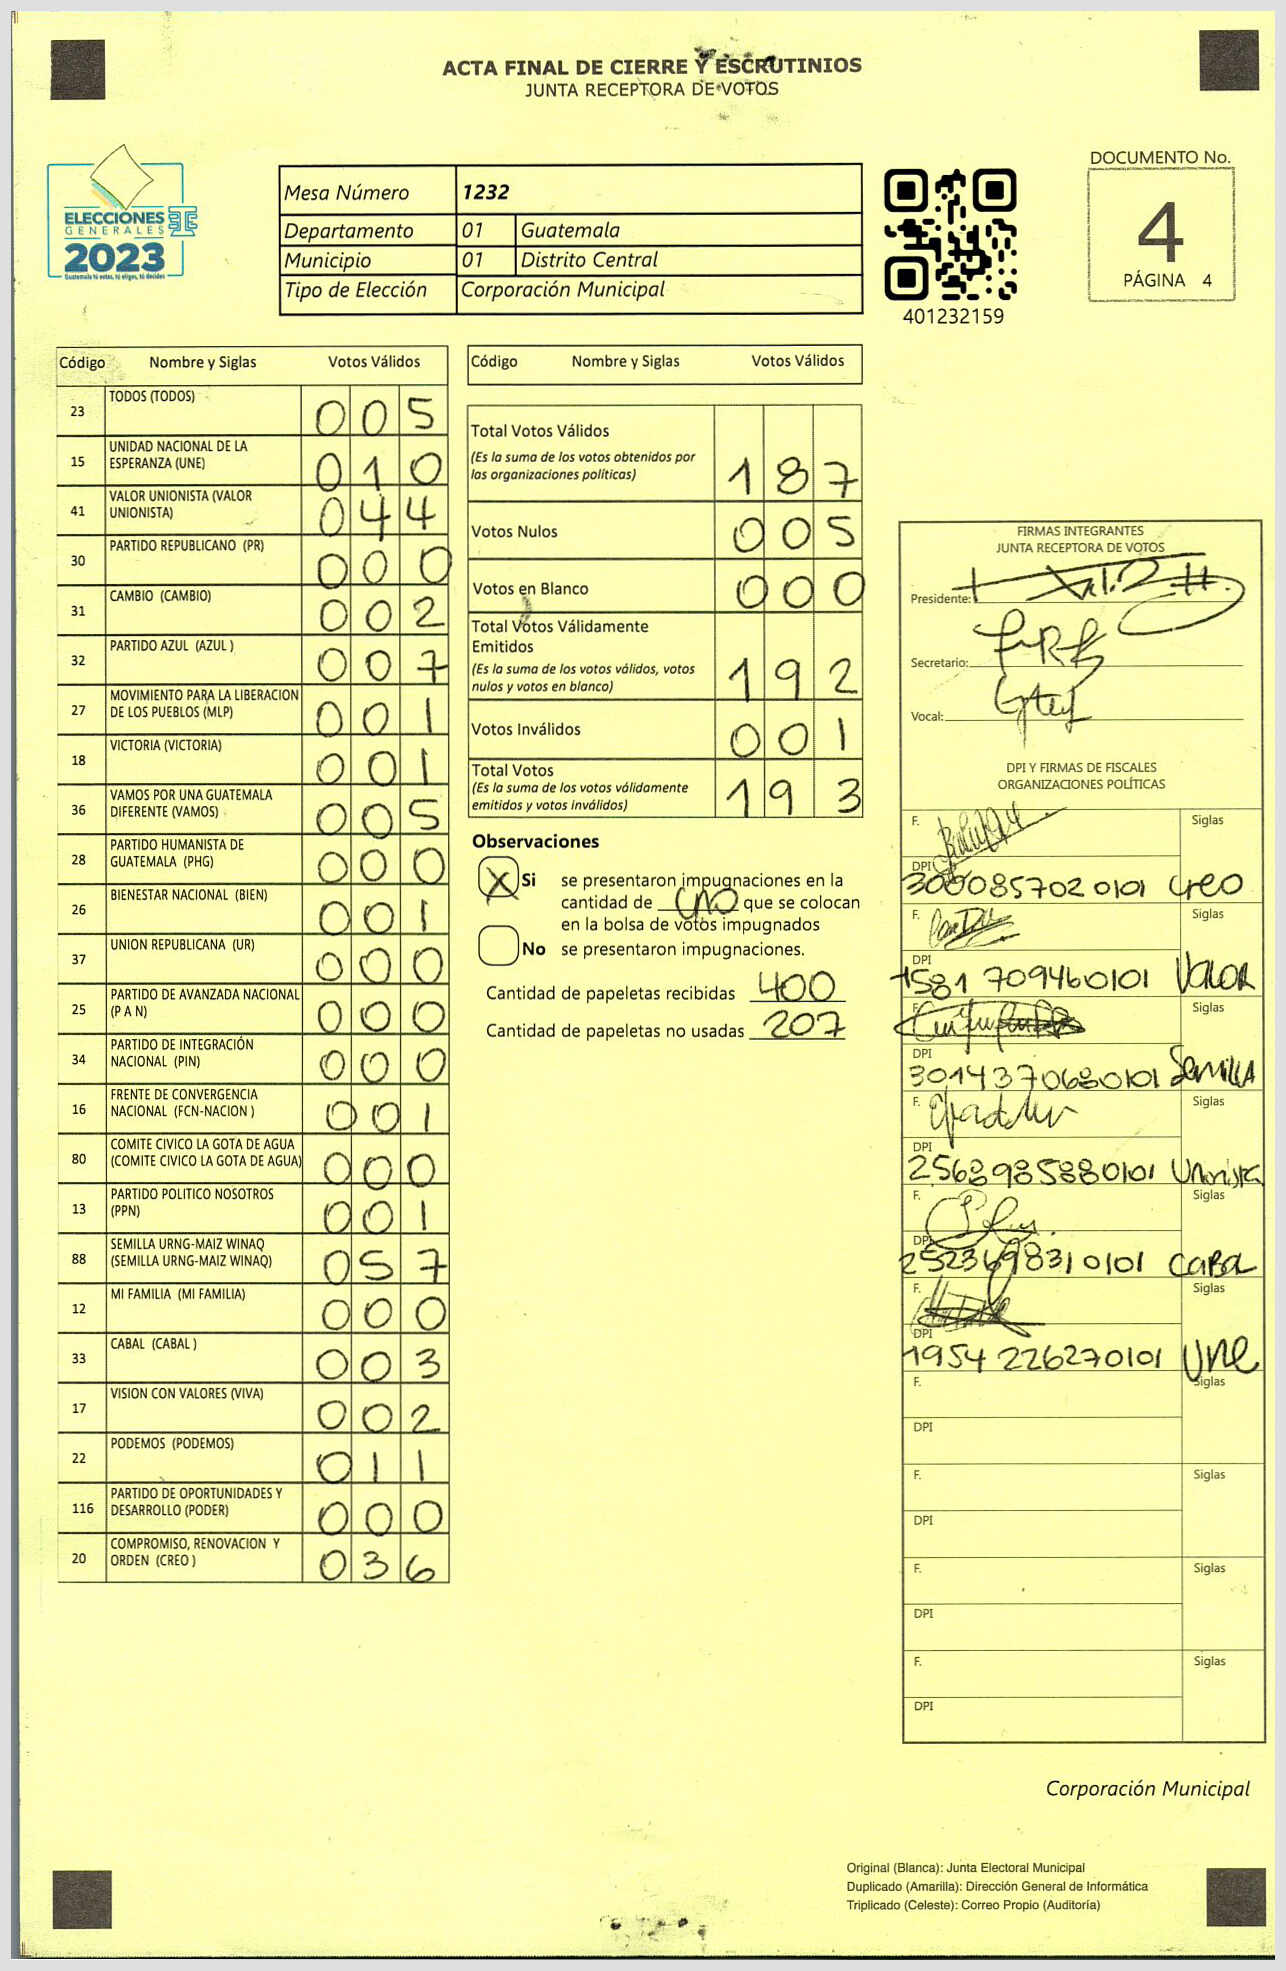 ACTA FINAL DE CIERRE Y ESCRUTINIOS
JUNTA RECEPTORA DE VOTOS
ELECCIONES
GENERALES
2023
Guatemala tú votas, tú eliges, tú decides
Mesa Número 1232
Departamento 01 Guatemala
Municipio 01 Distrito Central
Tipo de Elección Corporación Municipal
401232159
DOCUMENTO No.
4
PÁGINA 4
Código Nombre y Siglas Votos Válidos
23 TODOS (TODOS) 005
15 UNIDAD NACIONAL DE LA
ESPERANZA (UNE) 010
41 VALOR UNIONISTA (VALOR
UNIONISTA) 044
30 PARTIDO REPUBLICANO (PR) 000
31 CAMBIO (CAMBIO) 002
32 PARTIDO AZUL (AZUL ) 007
27 MOVIMIENTO PARA LA LIBERACION
DE LOS PUEBLOS (MLP) 001
18 VICTORIA (VICTORIA) 001
36 VAMOS POR UNA GUATEMALA
DIFERENTE (VAMOS) 005
28 PARTIDO HUMANISTA DE
GUATEMALA (PHG) 000
26 BIENESTAR NACIONAL (BIEN) 001
37 UNION REPUBLICANA (UR) 000
25 PARTIDO DE AVANZADA NACIONAL
(P A N) 000
34 PARTIDO DE INTEGRACIÓN
NACIONAL (PIN) 000
16 FRENTE DE CONVERGENCIA
NACIONAL (FCN-NACION ) 001
80 COMITE CIVICO LA GOTA DE AGUA
(COMITE CIVICO LA GOTA DE AGUA) 000
13 PARTIDO POLITICO NOSOTROS
(PPN) 001
88 SEMILLA URNG-MAIZ WINAQ
(SEMILLA URNG-MAIZ WINAQ) 057
12 MI FAMILIA (MI FAMILIA) 000
33 CABAL (CABAL ) 003
17 VISION CON VALORES (VIVA) 002
22 PODEMOS (PODEMOS) 011
116 PARTIDO DE OPORTUNIDADES Y
DESARROLLO (PODER) 000
20 COMPROMISO, RENOVACION Y
ORDEN (CREO ) 036
Código Nombre y Siglas Votos Válidos
Total Votos Válidos
(Es la suma de los votos obtenidos por
las organizaciones políticas) 187
Votos Nulos 005
Votos en Blanco 000
Total Votos Válidamente
Emitidos
(Es la suma de los votos válidos, votos
nulos y votos en blanco) 192
Votos Inválidos 001
Total Votos
(Es la suma de los votos válidamente
emitidos y votos inválidos) 193
Observaciones
X Si se presentaron impugnaciones en la
cantidad de uno que se colocan
en la bolsa de votos impugnados
No se presentaron impugnaciones.
Cantidad de papeletas recibidas 400
Cantidad de papeletas no usadas 207
FIRMAS INTEGRANTES
JUNTA RECEPTORA DE VOTOS
Presidente:
Secretario:
Vocal:
DPI Y FIRMAS DE FISCALES
ORGANIZACIONES POLÍTICAS
F. Siglas
DPI
3000857020101 Creo
F. Siglas
DPI
1581 709460101 Valor
F. Siglas
DPI
3014370680101 Semilla
F. Siglas
DPI
2568985880101 Unionista
F. Siglas
DPI
2523698310101 CABAL
F. Siglas
DPI
1954 226270101 UNE
F. Siglas
DPI
F. Siglas
DPI
F. Siglas
DPI
F. Siglas
DPI
Corporación Municipal
Original (Blanca): Junta Electoral Municipal
Duplicado (Amarilla): Dirección General de Informática
Triplicado (Celeste): Correo Propio (Auditoría)